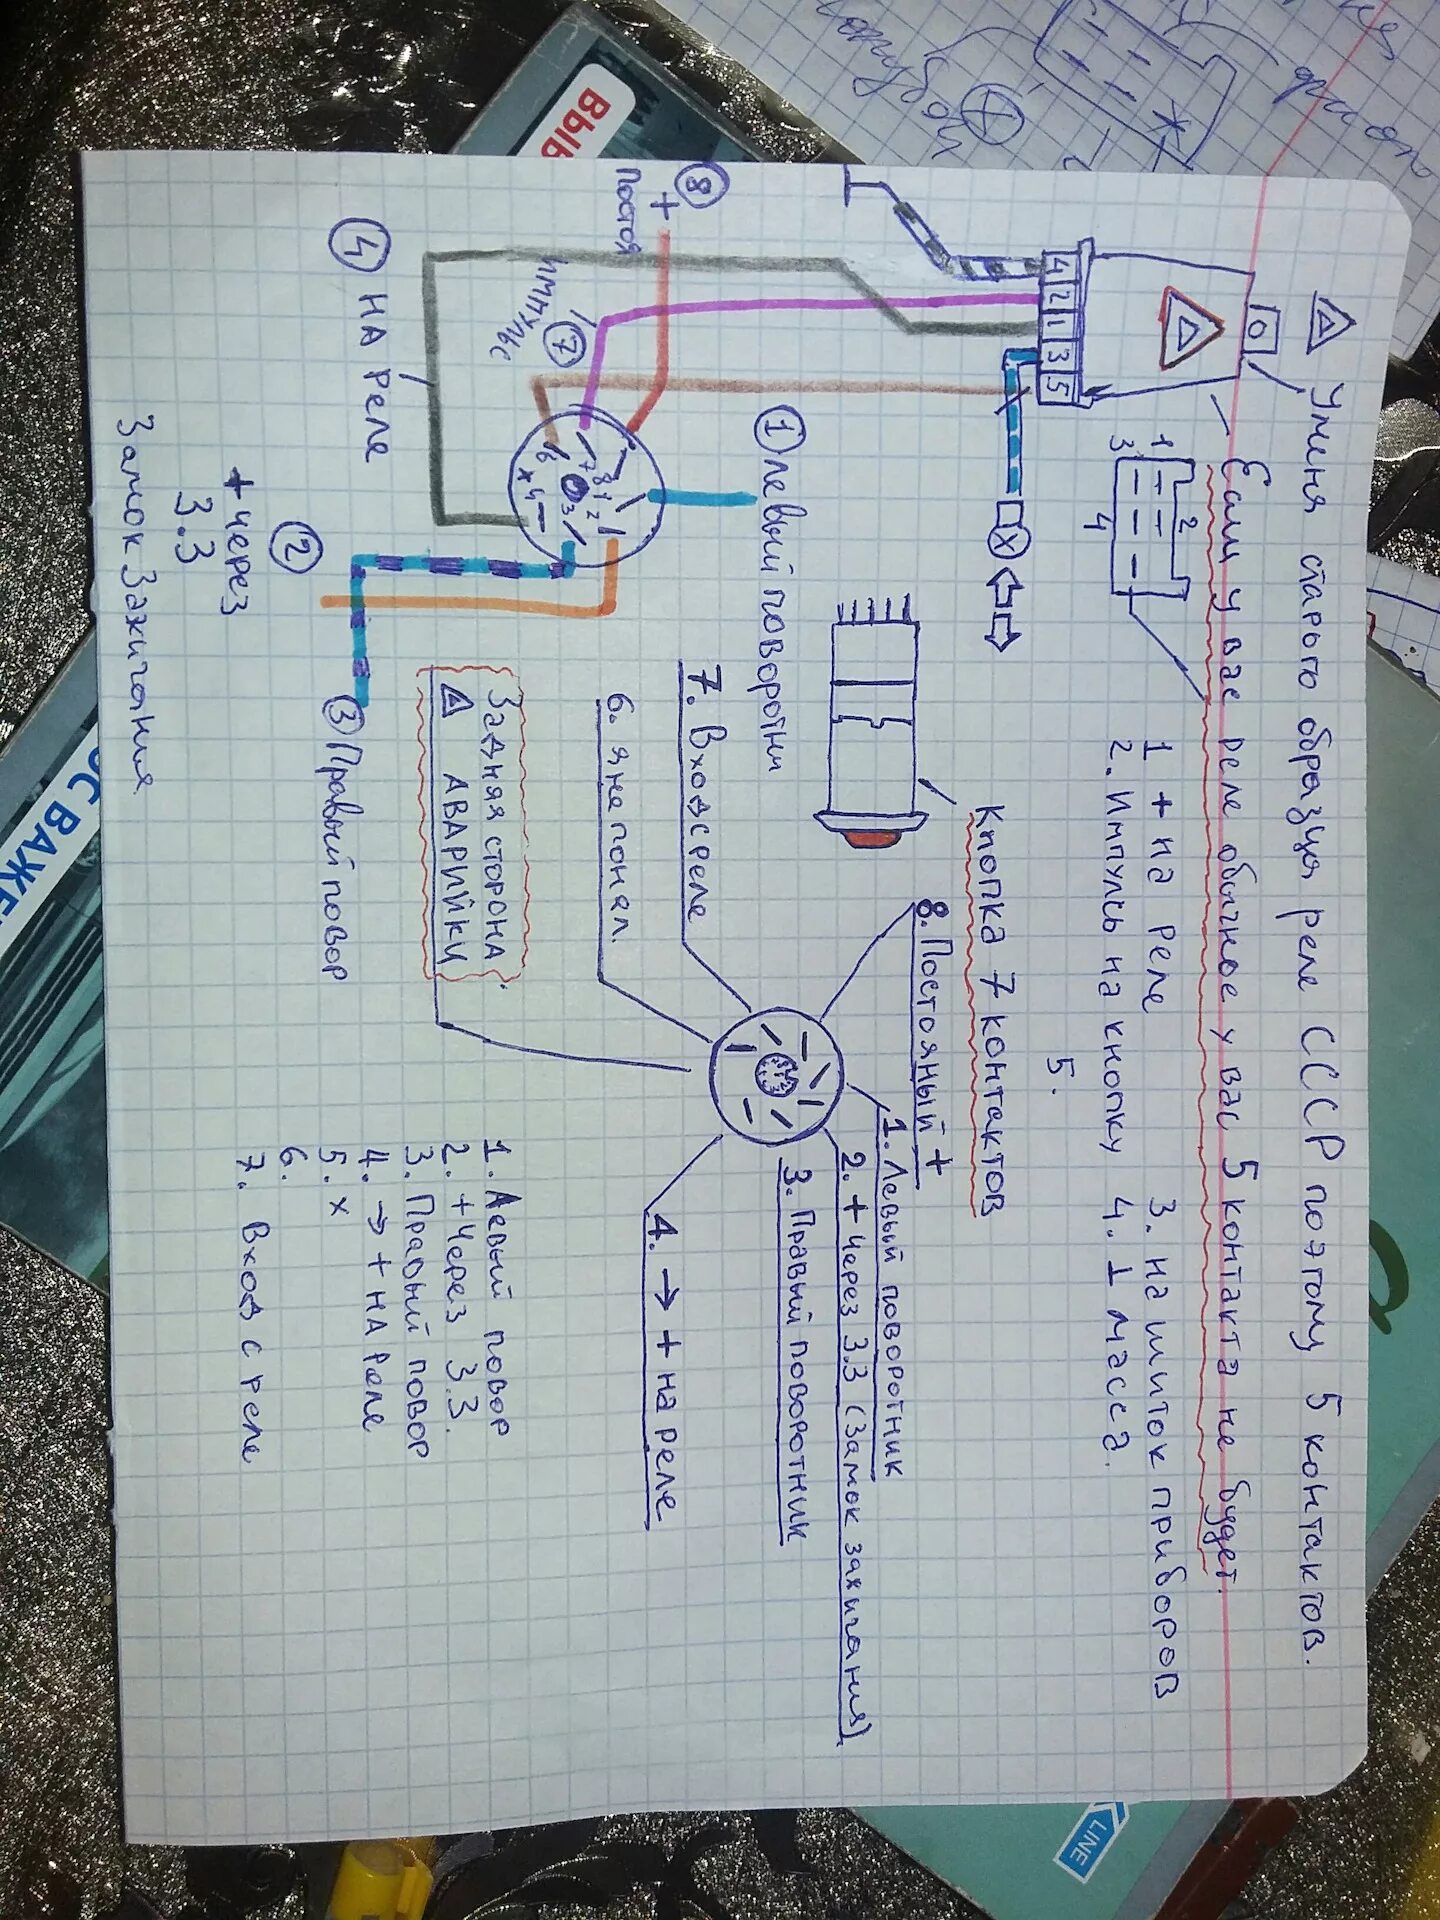 У меня старого образца реле СССР поэтому 5 контактов.
Если у вас реле обычное у вас 5 контакта не будет.
1 + на реле
2. Импульс на кнопку
3. на щиток приборов
4. ⊥ масса.
5.
1
2
3
4
4 2 1 3 5
Кнопка 7 контактов
8. Постояный +
1. Левый поворотник
2. + через 3.3 (Замок зажигания)
3. Правый поворотник
4. → + на реле
7. Вход с реле
6. я не понял.
Задняя сторона
АВАРИЙКИ
1 левый поворотни
8
+
Постоя
7
импульс
4 НА реле
6 7 8 1 2 3 4 x
3 Правый повор
2
+ через
3.3
Замок Зажигания
1. Левый повор
2. + Через 3.3.
3. Правый повор
4. → + на реле
5. x
6.
7. Вход с реле
ВЫБ
ОС ВАЖЕ
LINE